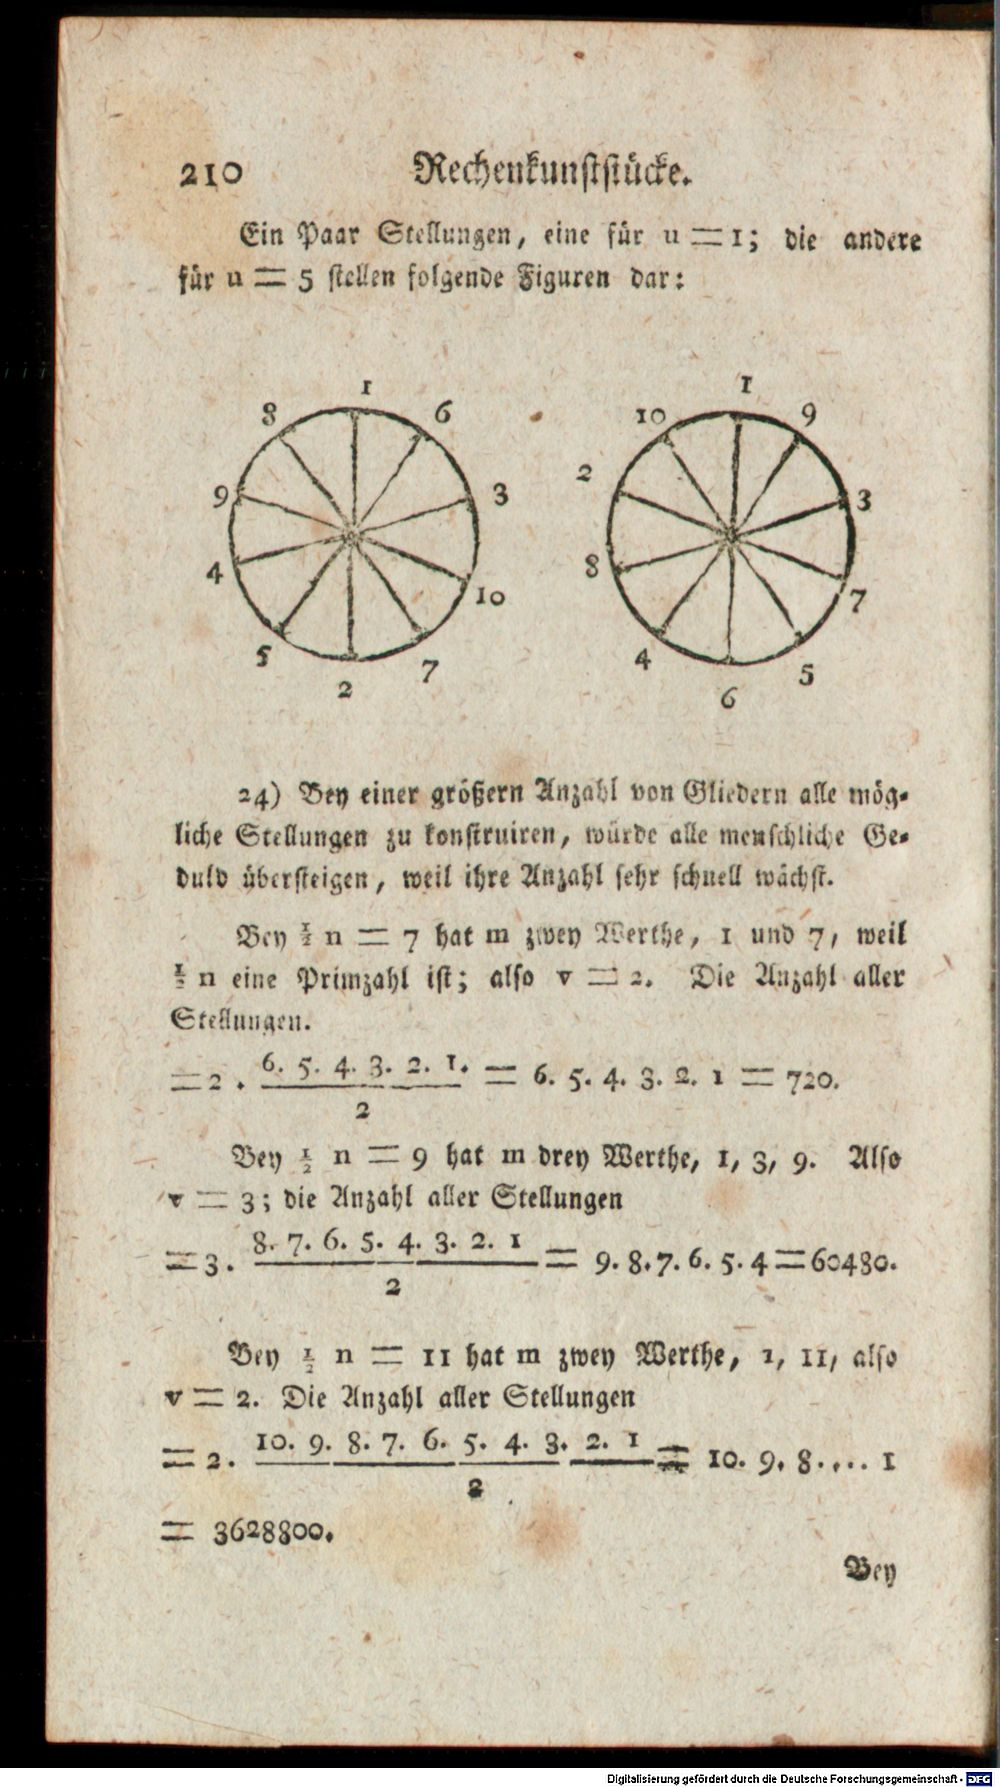 210 Rechenkunststücke.
Ein Paar Stellungen, eine für u = 1; die andere
für u = 5 stellen folgende Figuren dar:
1
8 6
9 3
4 10
5 7
2
1
10 9
2 3
8 7
4 5
6
24) Bey einer größern Anzahl von Gliedern alle mög-
liche Stellungen zu konstruiren, würde alle menschliche Ge-
duld übersteigen, weil ihre Anzahl sehr schnell wächst.
Bey ½ n = 7 hat m zwey Werthe, 1 und 7, weil
½ n eine Primzahl ist; also v = 2. Die Anzahl aller
Stellungen.
= 2 . 6. 5. 4. 3. 2. 1. / 2 = 6. 5. 4. 3. 2. 1 = 720.
Bey ½ n = 9 hat m drey Werthe, 1, 3, 9. Also
v = 3; die Anzahl aller Stellungen
= 3. 8. 7. 6. 5. 4. 3. 2. 1 / 2 = 9. 8. 7. 6. 5. 4 = 60480.
Bey ½ n = 11 hat m zwey Werthe, 1, 11, also
v = 2. Die Anzahl aller Stellungen
= 2. 10. 9. 8. 7. 6. 5. 4. 3. 2. 1 / 2 = 10. 9. 8. ... 1
= 3628800.
Bey
Digitalisierung gefördert durch die Deutsche Forschungsgemeinschaft - DFG